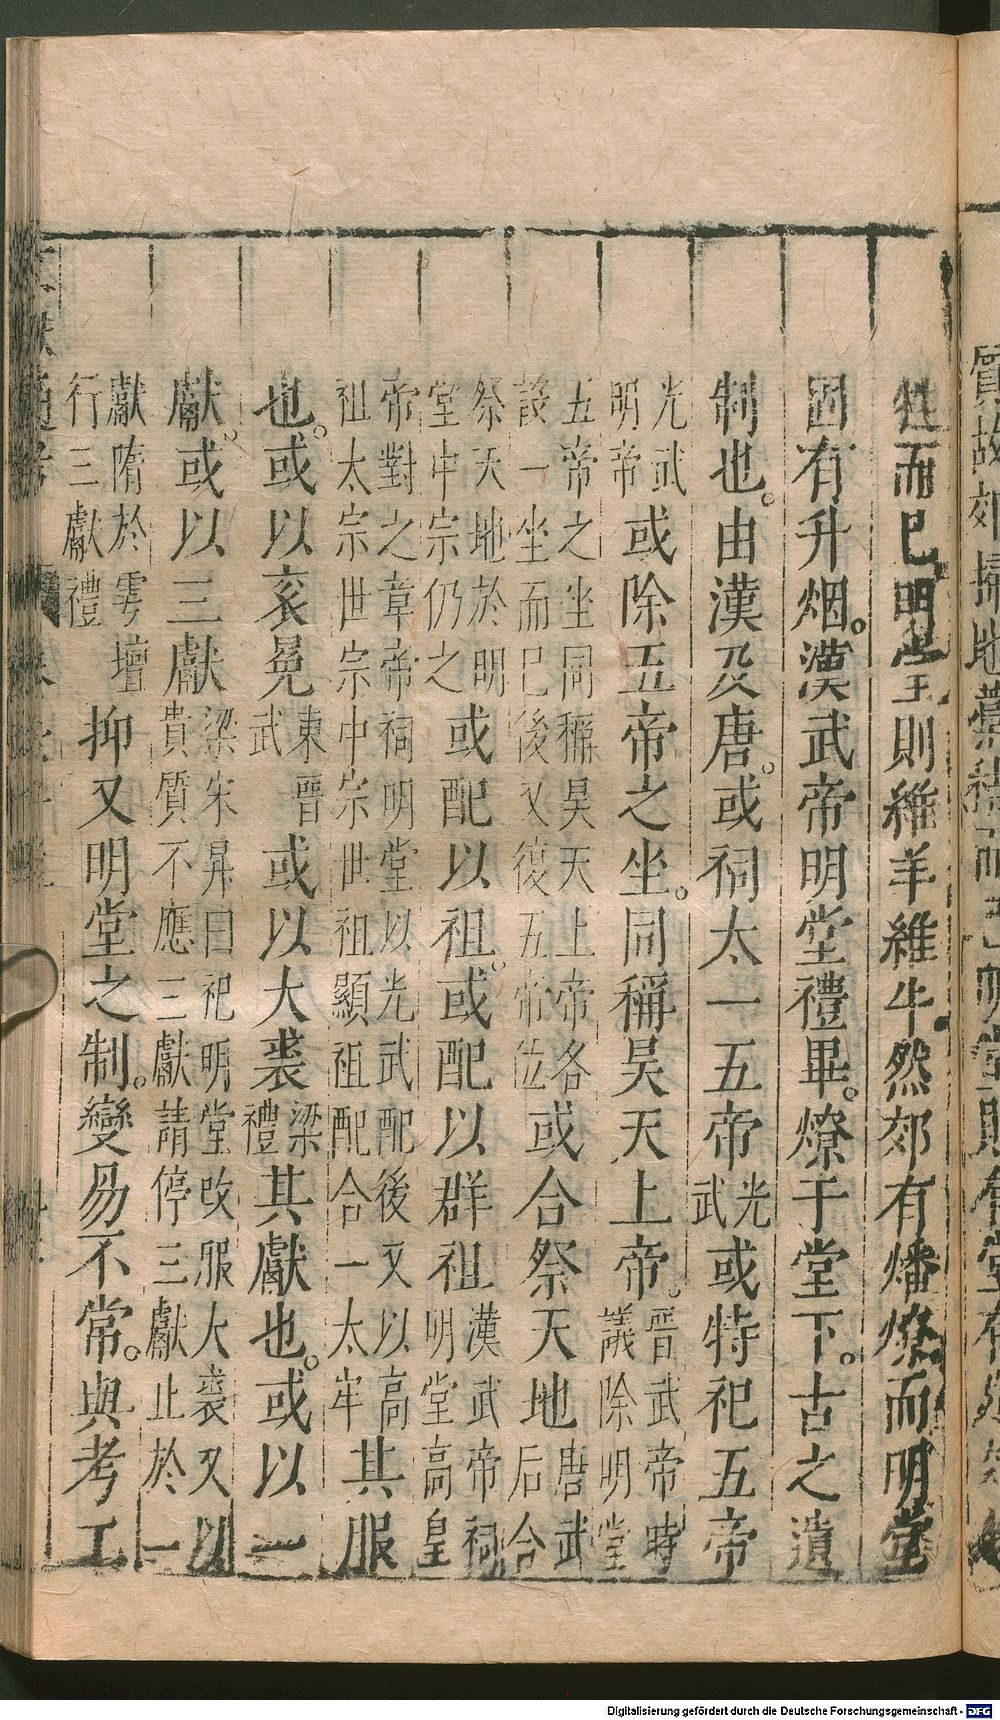 牲而已明堂則維羊維牛然郊有燔燎而明堂
固有升烟。漢武帝明堂禮畢。燎于堂下。古之遺
制也。由漢及唐。或祠太一五帝光武或特祀五帝
光武明帝或除五帝之坐。同稱昊天上帝。晉武帝時議除明堂
五帝之坐同稱昊天上帝各設一坐而已後又復五帝位或合祭天地唐武后合
祭天地於明堂中宗仍之或配以祖。或配以群祖漢武帝祠明堂高皇
帝對之章帝祠明堂以光武配後又以高祖太宗世宗中宗世祖顯祖配合一太牢其服
也。或以袞冕東晉武或以大裘梁禮其獻也。或以一
獻。或以三獻梁朱异曰祀明堂改服大裘又以貴質不應三獻請停三獻止於一
獻隋於雩壇行三獻禮抑又明堂之制。變易不常。與考工
Digitalisierung gefördert durch die Deutsche Forschungsgemeinschaft - DFG